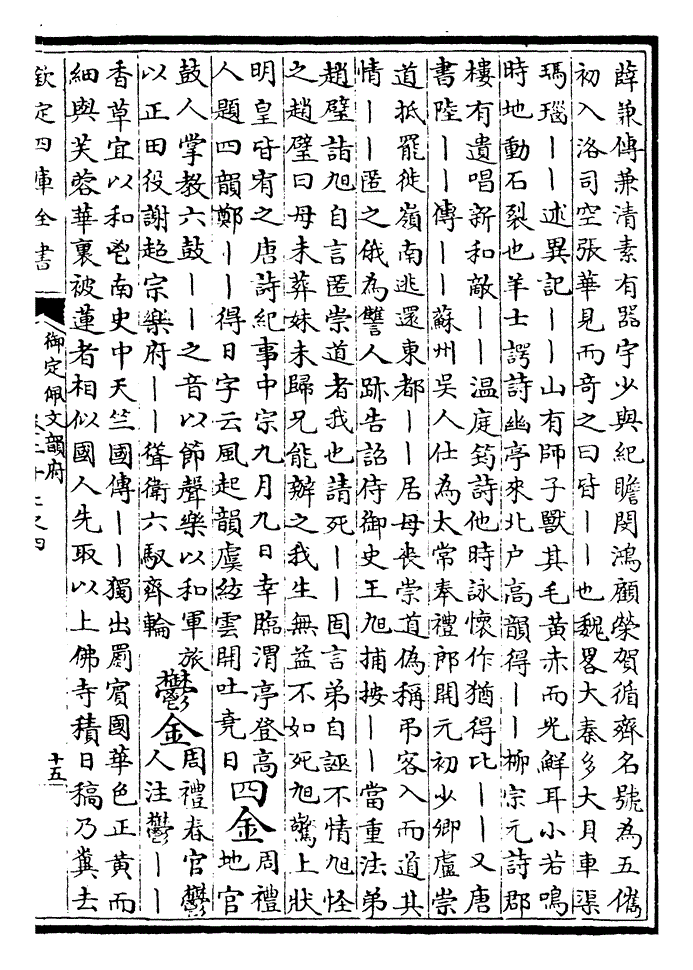 薛兼傳兼清素有器宇少與紀瞻閔鴻顧榮賀循齊名號為五儁
初入洛司空張華見而奇之曰皆｜｜也魏畧大秦多大貝車渠
瑪瑙｜｜述異記｜｜山有師子獸其毛黄赤而光鮮耳小若鳴
時地動石裂也羊士諤詩幽亭來北户高韻得｜｜栁宗元詩郡
樓有遺唱新和敵｜｜温庭筠詩他時詠懷作猶得比｜｜又唐
書陸｜｜傳｜｜蘇州吳人仕為太常奉禮郎開元初少卿盧崇
道抵罪徙嶺南逃還東都｜｜居母喪崇道偽稱弔客入而道其
情｜｜匿之俄為讐人跡告詔侍御史王旭捕按｜｜當重法弟
趙璧詣旭自言匿崇道者我也請死｜｜固言弟自誣不情旭怪
之趙璧曰母未葬妹未歸兄能辦之我生無益不如死旭驚上狀
明皇皆宥之唐詩紀事中宗九月九日幸臨渭亭登高
人題四韻鄭｜｜得日字云風起韻虞絃雲開吐堯日
四金
周禮
地官
鼓人掌教六鼓｜｜之音以節聲樂以和軍旅
以正田役謝超宗樂府｜｜聳衛六馭齊輪
鬱金
周禮春官鬱
人注鬱｜｜
香草宜以和鬯南史中天竺國傳｜｜獨出罽賓國華色正黄而
細與芙蓉華裏被蓮者相似國人先取以上佛寺積日稿乃糞去
欽定四庫全書
御定佩文韻府
十五